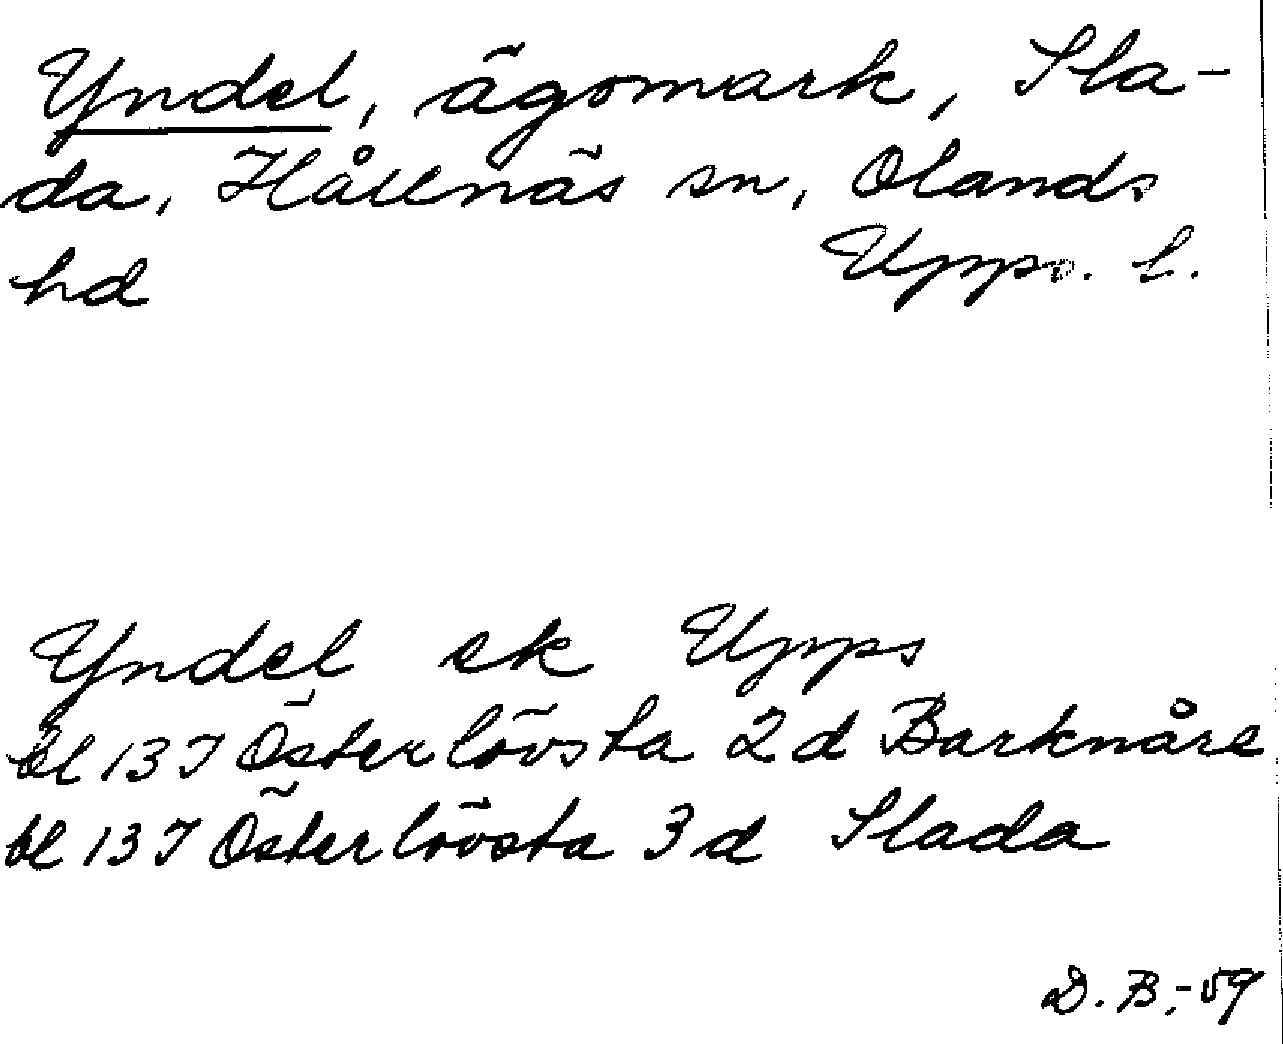 Yndel, ägomark, Sla-
da, Hållnäs sn, Olands
hd Upps. l.
Yndel ek Upps
bl 13 I Österlövsta 2 d Barknåre
bl 13 I Österlövsta 3 d Slada
D. B. -59